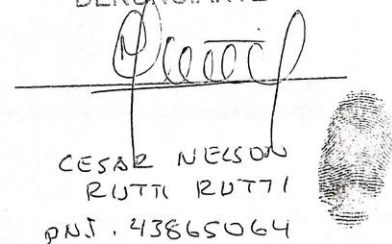 DENUNCIANTE
CESAR NELSON
RUTTI RUTTI
DNI. 43865064